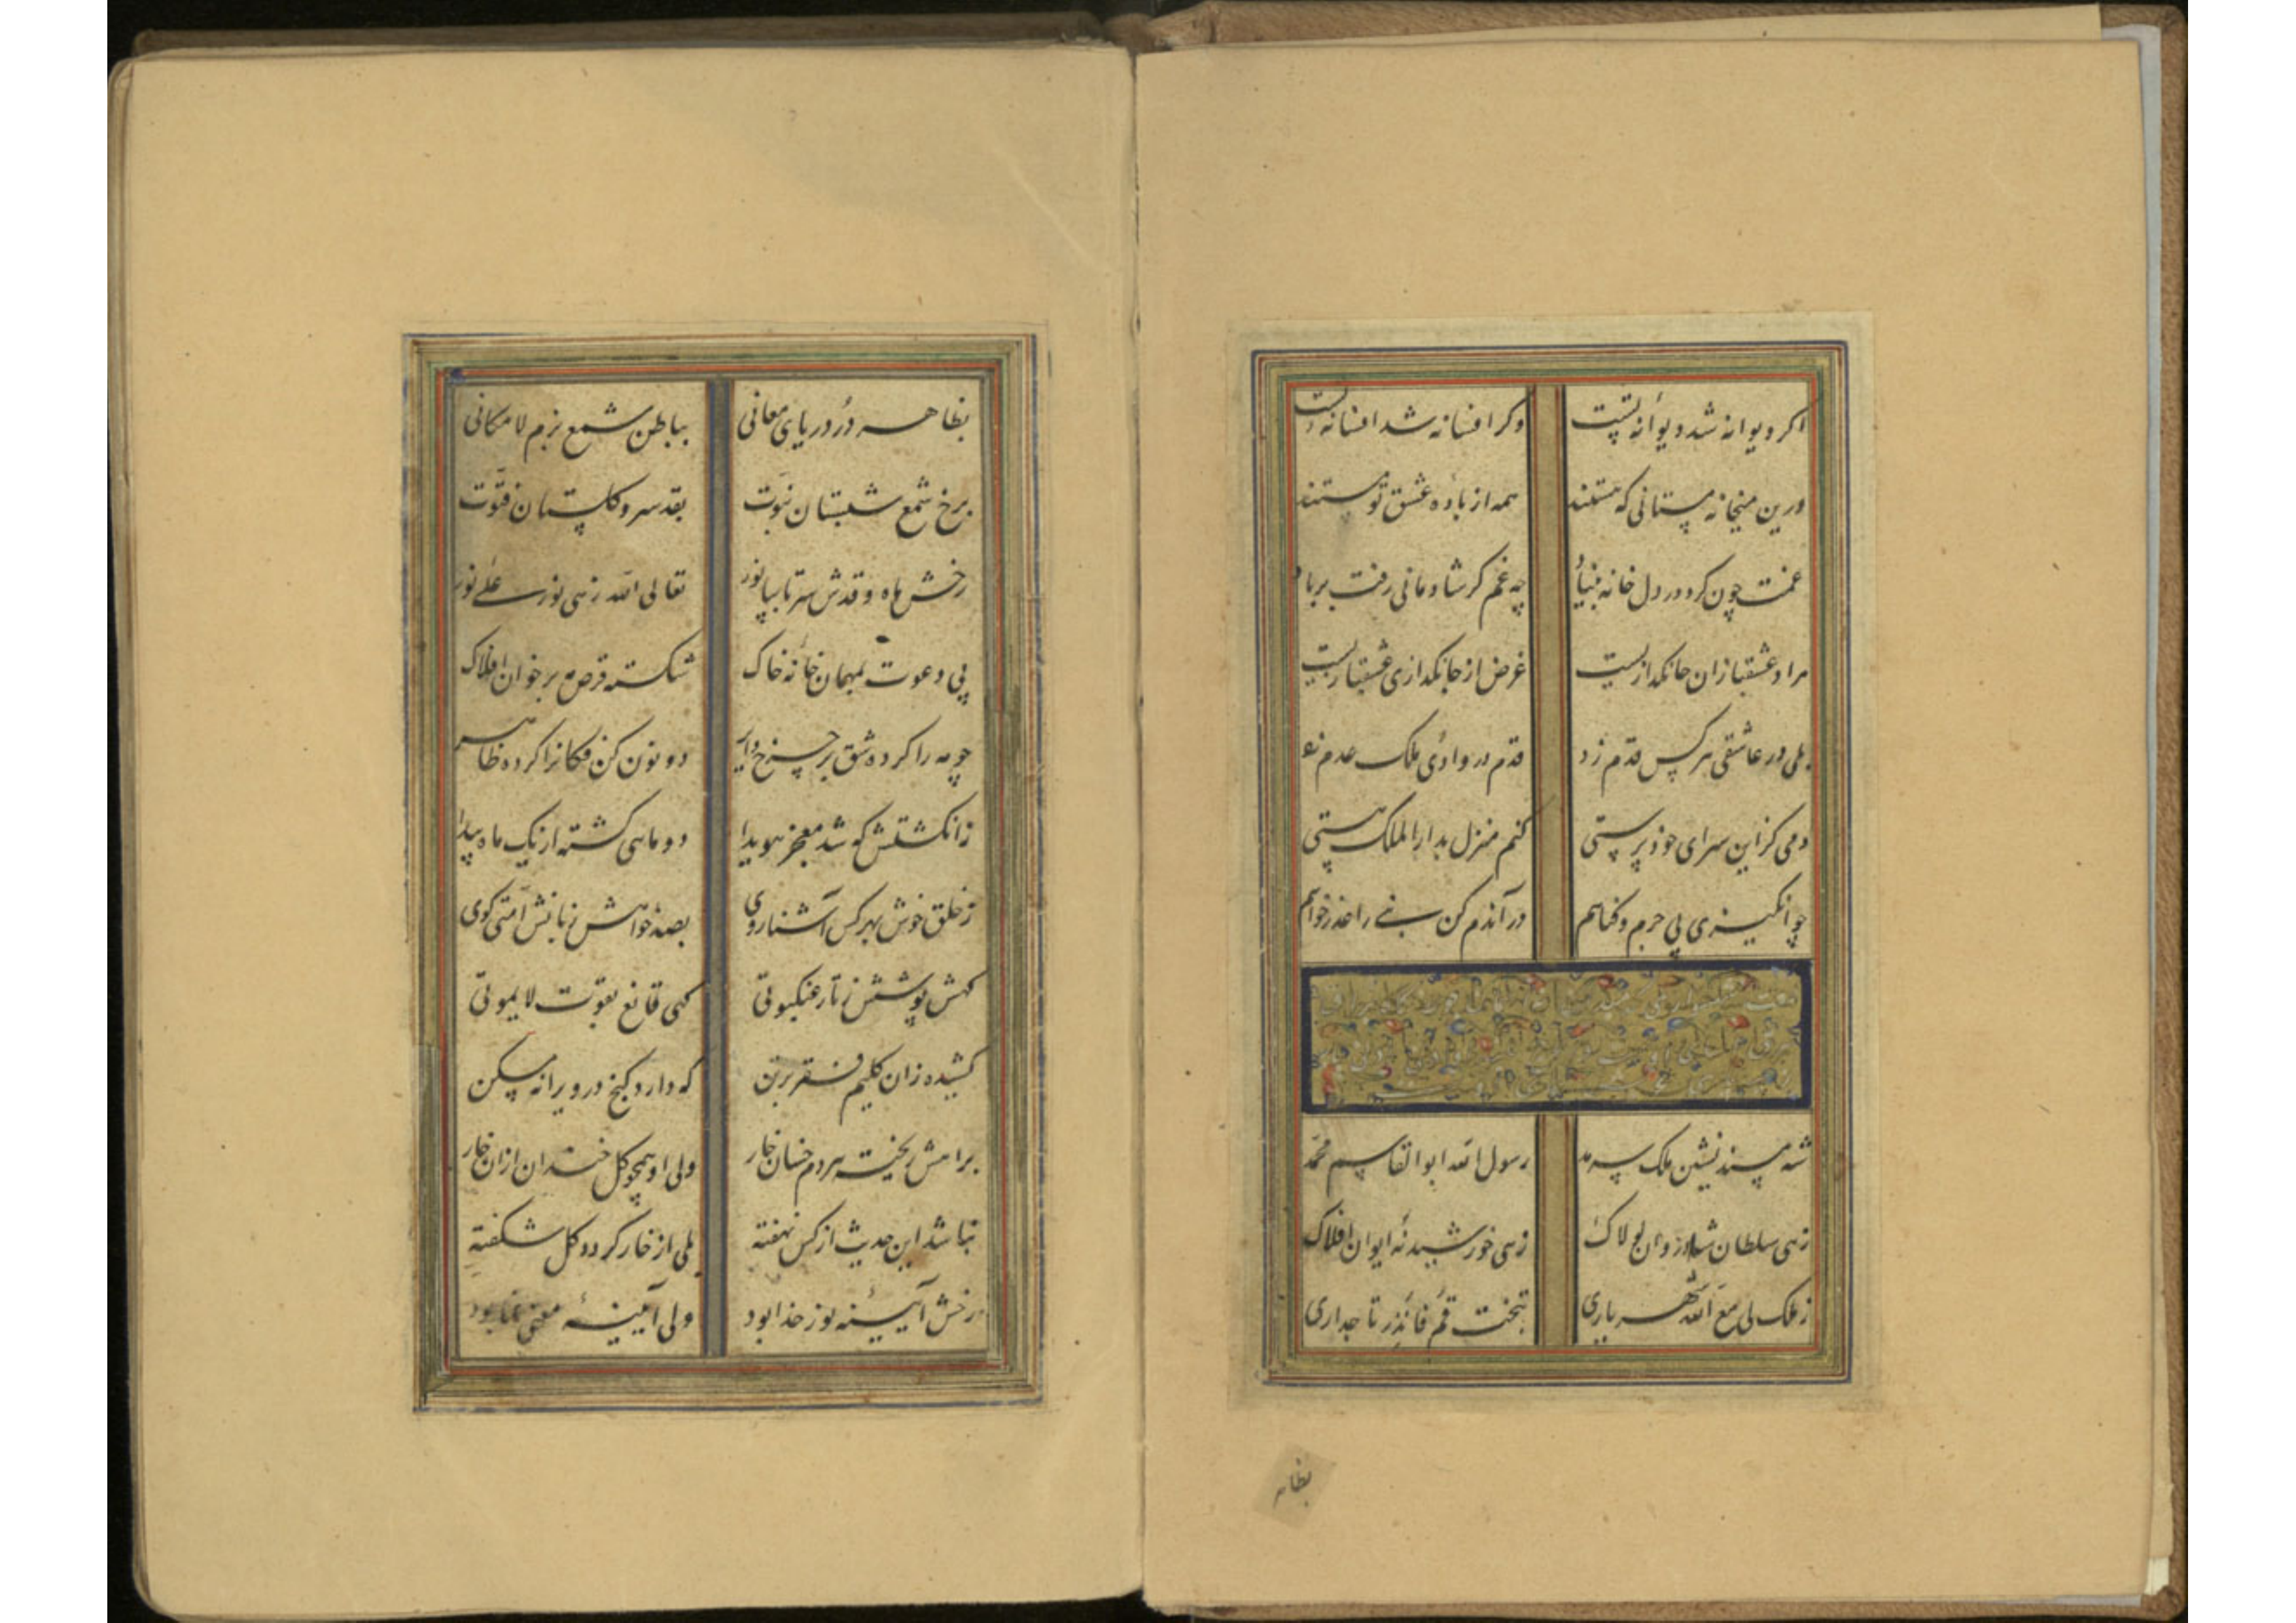 اکر دیوانه شد دیوانهٔ تست وکر افسانه شد افسانهٔ تست
درین میخانه مستانی که هستند همه از بادهٔ عشق تو مستند
غمت چون کرد در دل خانه بنیاد چه غم کر شادمانی رفت بر باد
مراد عشقبازان جانکدازیست غرض از جانکدازی عشقبازیست
بلی در عاشقی هر کس قدم زد قدم در وادی ملک عدم زد
دمی کز این سرای خودپرستی کنم منزل بدار الملک هستی
چو انکیزی پی جرم و کناهم در آندم کن نبی را عذرخواهم
شه مسند نشین ملک سرمد رسول الله ابو القاسم محمد
زهی سلطان شادروان لولاک زهی خورشید نه ایوان افلاک
ز ملک لی مع الله شهریاری بتخت قم فانذر تاجداری
بظاهر
بظاهر در دریای معانی بباطن شمع بزم لامکانی
برخ شمع شبستان نبوت بقد سرو کلستان فتوت
رخش ماه و قدش سر تا بپا نور تعالی الله زهی نور علی نور
پی دعوت بمهمان خانهٔ خاک شکسته قرص مه بر خوان افلاک
چو مه را کرده شق بر چرخ دایر دو نون کن فکانرا کرده ظاهر
ز انکشتش که شد معجز هویدا دو ماهی کشته از یک ماه پیدا
ز خلق خوش بهر کس آشنا روی بصد خواهش زبانش امتی کوی
کهش پوشش ز تار عنکبوتی کهی قانع بقوت لا یموتی
کشیده زان کلیم فقر بر تن که دارد کنج در ویرانه مسکن
براهش ریخته مردم خسان خار ولی او همچو کل خندان از ان خار
نباشد این حدیث از کس نهفته بلی از خار کردد کل شکفته
رخش آیینهٔ نور خدا بود ولی آیینهٔ معنی نما بود